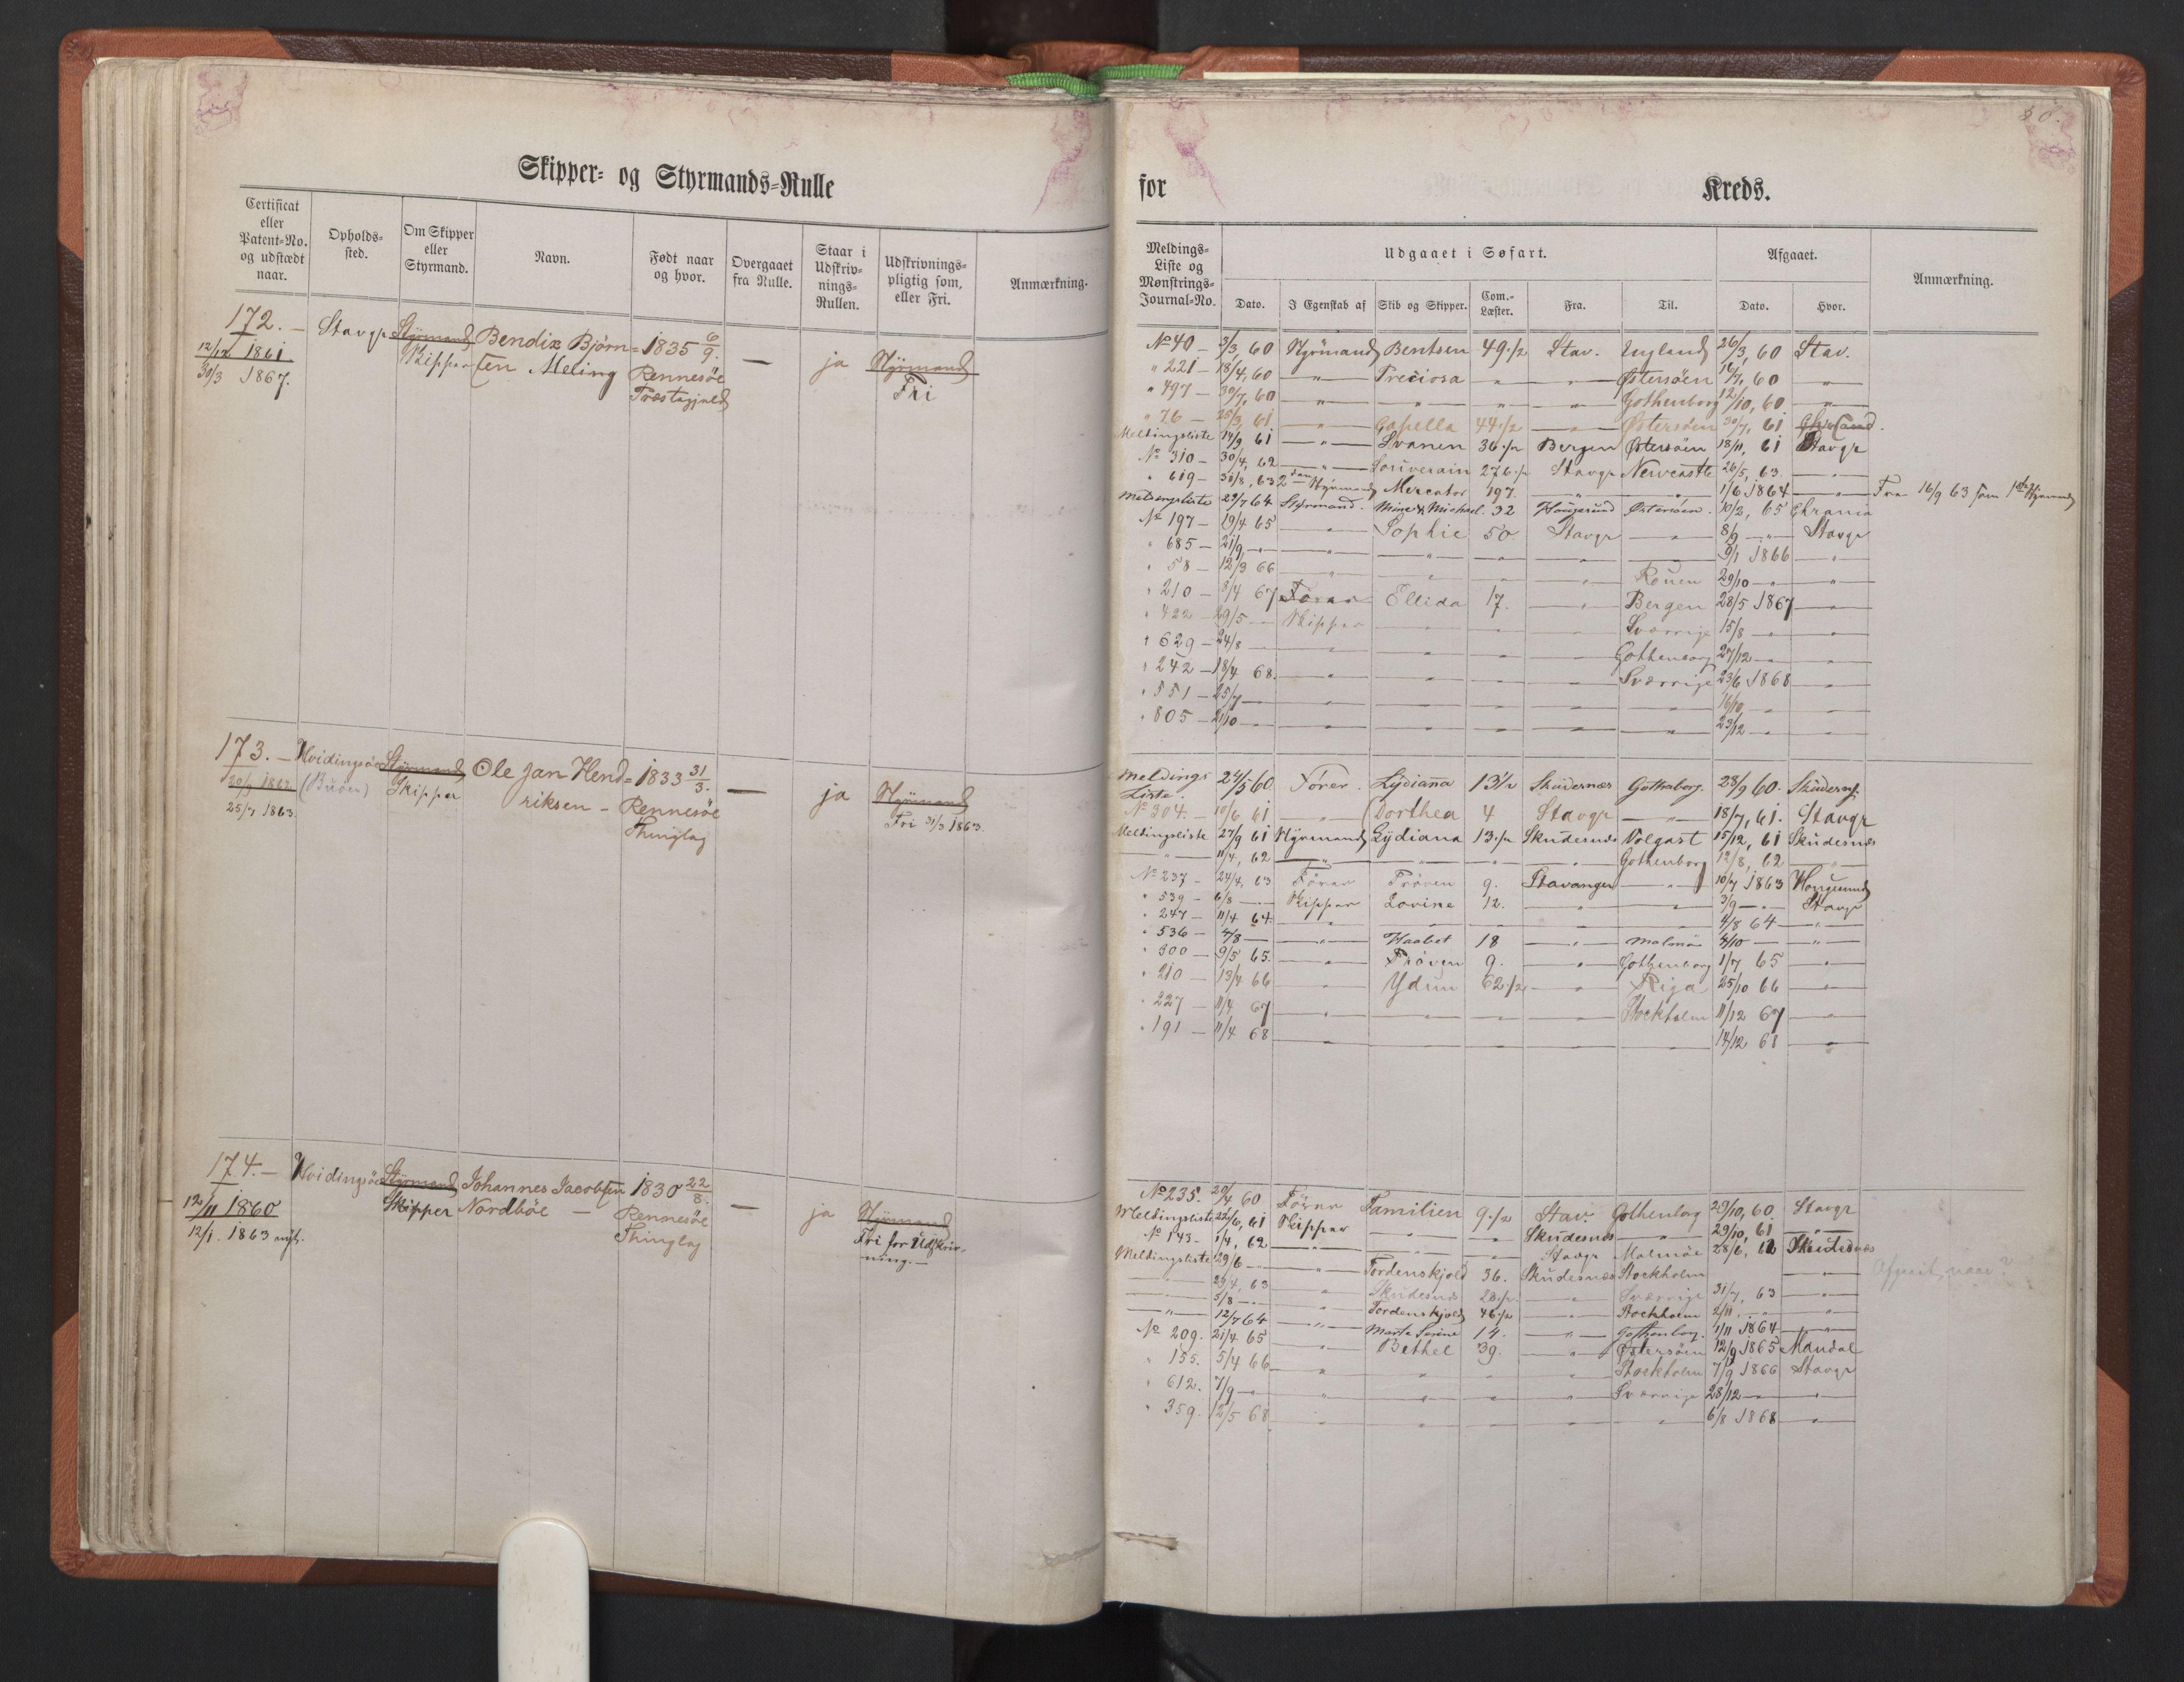 Skipper- og Styrmands-Rulle
Certificat eller Patent-No. og udstædt naar.
Opholds-sted.
Om Skipper eller Styrmand.
Navn.
Født naar og hvor.
Overgaaet fra Rulle.
Staar i Udskriv-nings-Rullen.
Udskrivnings-pligtig som, eller Fri.
Anmærkning.
172. — Stavgr Styrmand Bendix Bjørn= 1835 6/9. — ja Styrmand
12/12 1861. Skipper sen Meling Rennesøe Fri
30/3 1867. Præstegjeld
173. — Hvidingsöe Styrmand Ole Jan Hend= 1833 31/3. — ja Styrmand
20/3 1862 (Buöen) Skipper riksen — Rennesøe Fri 31/3 1863.
25/7 1863. Thinglag
174. — Hvidingsöe Styrmand Johannes Jacobsen 1830 22/8. — ja Styrmand
12/11 1860 Skipper Nordböe — Rennesöe Fri for Udskriv-
12/1. 1863 nyt. Thinglag ning. —
for Kreds.
Meldings-Liste og Mønstrings-Journal-No.
Udgaaet i Søfart.
Dato.
I Egenskab af
Skib og Skipper.
Com.-Læster.
Fra.
Til.
Afgaaet.
Dato.
Hvor.
Anmærkning.
No 40 — 3/3, 60 Styrmand Bentsen 49 1/2 Stav. England 26/3, 60 Stav.
" 221 — 18/4, 60 — " — Preciosa — " — — " — Østersöen 16/7, 60 — " —
" 497 — 30/7, 60 — " — — " — — " — — " — Gothenborg 12/10, 60 — " —
" 76 — 25/3, 61 — " — Capella 44 1/2 — " — Østersöen 30/7, 61
Meldingsliste 14/9 61 — " — Svanen 36 1/2 Bergen Østersöen 18/11, 61 Stavgr
No 310 — 30/4, 62 — " — Souverain 276 1/2 Stavgr Newcastle 26/5, 63. — " —
" 619 — 31/8, 63 2den Styrmand Mercator 197. — " — — " — 1/6 1864 — " — Fra 16/9 63 som 1ste Styrmand
Meldingsliste 29/7 64 Styrmand. Mine & Michael. 32 Haugesund Østersöen. 10/2, 65 Chrania
No 197 — 19/4 65 — " — Sophie 50. Stavgr — " — 8/9 — " — Stavgr
" 685 — 21/9 — " — — " — — " — — " — — " — — " — 9/1 1866 — " —
" 58 — 12/3 66 — " — — " — — " — — " — Rouen 29/10 — " — — " —
" 210 — 3/4 67 Förer Ellida 17. — " — Bergen 28/5 1867 — " —
" 422 — 29/5 — Skipper — " — — " — — " — Sverrige 15/8 — " — — " —
" 629 — 24/8 — — " — — " — — " — — " — Gothenborg 27/12 — " — — " —
" 242 — 18/4 68. — " — — " — — " — — " — Sverrige 23/6 1868 — " —
" 551 — 25/7 — — " — — " — — " — — " — — " — 16/10 — " — — " —
" 805 — 21/10 — — " — — " — — " — — " — — " — 23/12 — " — — " —
Meldings Liste. 24/5 60. Förer. Lydianna 13 1/2 Skudesnæs Gothaborg. 28/9 60. Skudesn.
No 304. — 10/6 61 — " — Dorthea 4 Stavgr — " — 18/7, 61. Stavgr
Meldingsliste 27/9 61 Styrmand Lydiana 13 1/2 Skudesnæs Volgast 15/12, 61 Skudesnæs
— " — 11/4, 62 — " — — " — — " — — " — Gothenborg 12/8, 62 — " —
No 237 — 24/4, 63 Förer Pröven 9. Stavanger — " — 10/7 1863 Haugesund
" 539 — 6/8 — Skipper Lovine 12. — " — — " — 3/9 — " — Stavgr
" 247 — 11/4 64. — " — — " — — " — — " — — " — 4/8 64 — " —
" 536 — 4/8 — — " — Haabet 18 — " — Malmöe 4/10 — — " —
" 300 — 9/5 65. — " — Pröven 9. — " — Gothenborg 1/7 65 — " —
" 210 — 13/4 66 — " — Ydun 62 1/2 — " — Riga 25/10 66 — " —
" 227 — 11/4 67 — " — — " — — " — — " — Stockholm 11/12 67 — " —
" 191 — 11/4 68 — " — — " — — " — — " — — " — 14/12 68 — " —
No 235. 20/4 60 Förer Familien 9 1/2 Stav. Gothenborg 29/10, 60. Stavgr
Meldingsliste 22/6, 61 Skipper — " — — " — Skudesnæs — " — 29/10, 61 — " —
No 143 — 1/4, 62 — " — — " — — " — Stavgr Malmöe 28/6, 62 Skudesnæs
Meldingsliste 29/6 — — " — Tordenskjold 36. Skudesnæs Stockholm — " — Afgaaet, naar?
— " — 29/4, 63 — " — Skudesnæs 28 1/2. — " — Sverrige 31/7, 63 — " —
5/8 — — " — Tordenskjold 46 1/2 — " — Stockholm 2/11. — " — — " —
— " — 12/7 64 — " — Marte Serine 14. — " — Gothenborg. 1/11 1864 — " —
No 209. 21/4 65 — " — Bethel 39. — " — Østersöen 12/9 1865 Mandal
" 155. 5/4 66 — " — — " — — " — — " — Stockholm 7/9 1866 Stavgr
" 612. 7/9 — — " — — " — — " — — " — Sverrige 28/12 — " — — " —
" 359. 12/5 68 — " — — " — — " — — " — — " — 6/8 1868 — " —